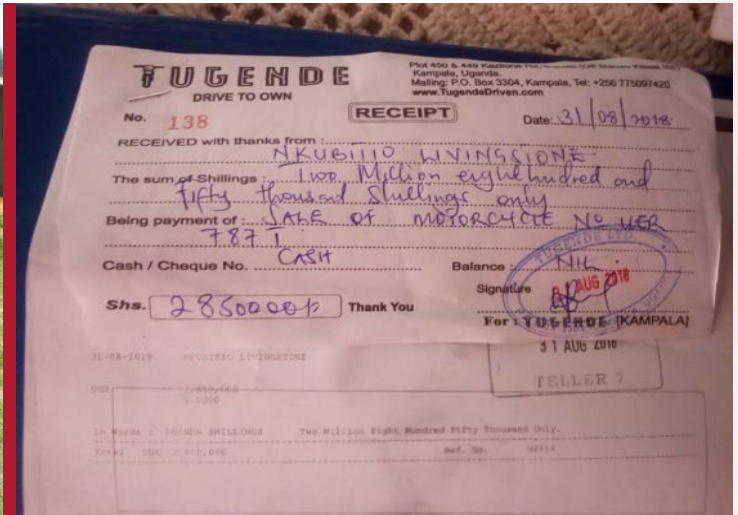 TUGENDE
DRIVE TO OWN
Plot 450 & 449
Kampala, Uganda.
Mailing: P.O. Box 3304, Kampala, Tel: +256 775097420
www.TugendeDriven.com
No. 138
RECEIPT
Date: 31/08/2018
RECEIVED with thanks from :
NKUBITIO LIVINGSTONE
The sum of Shillings : Two Million eight hundred and
fifty thousand Shillings only
Being payment of : SALE OF MOTORCYCLE NO UER
787 I
Cash / Cheque No. CASH
Balance : NIL
Signature
TUGENDE LTD
AUG 2018
Shs. 2850000/=
Thank You
For : TUGENDE [KAMPALA]
31 AUG 2018
TELLER 7
31-08-2018 LIVINGSTONE
UGX 2,850,000
1.0000
In Words : UGANDA SHILLINGS Two Million Eight Hundred Fifty Thousand Only.
Total UGX 2,850,000 Ref. No. :